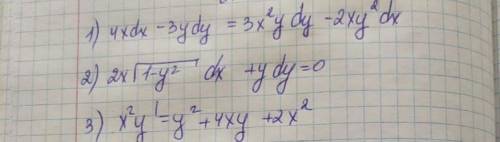 1) 4xdx - 3ydy = 3x²ydy - 2xy²dx
2) 2x√(1-y²) dx + ydy = 0
3) x²y' = y² + 4xy + 2x²